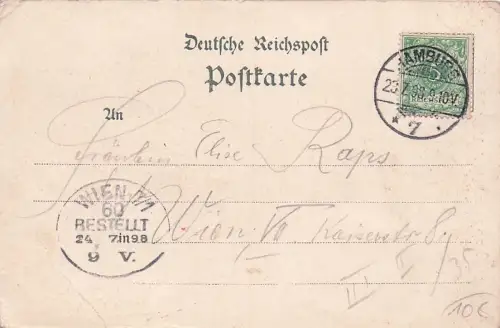 Deutsche Reichspost
Postkarte
HAMBURG
23.7.98.9-10V.
* 7 *
5
An
Fräulein Elise Raps
WIEN 7/1
60
BESTELLT
24. 7 in 98
9 V.
Wien, VII Kaiserstr 8
10€